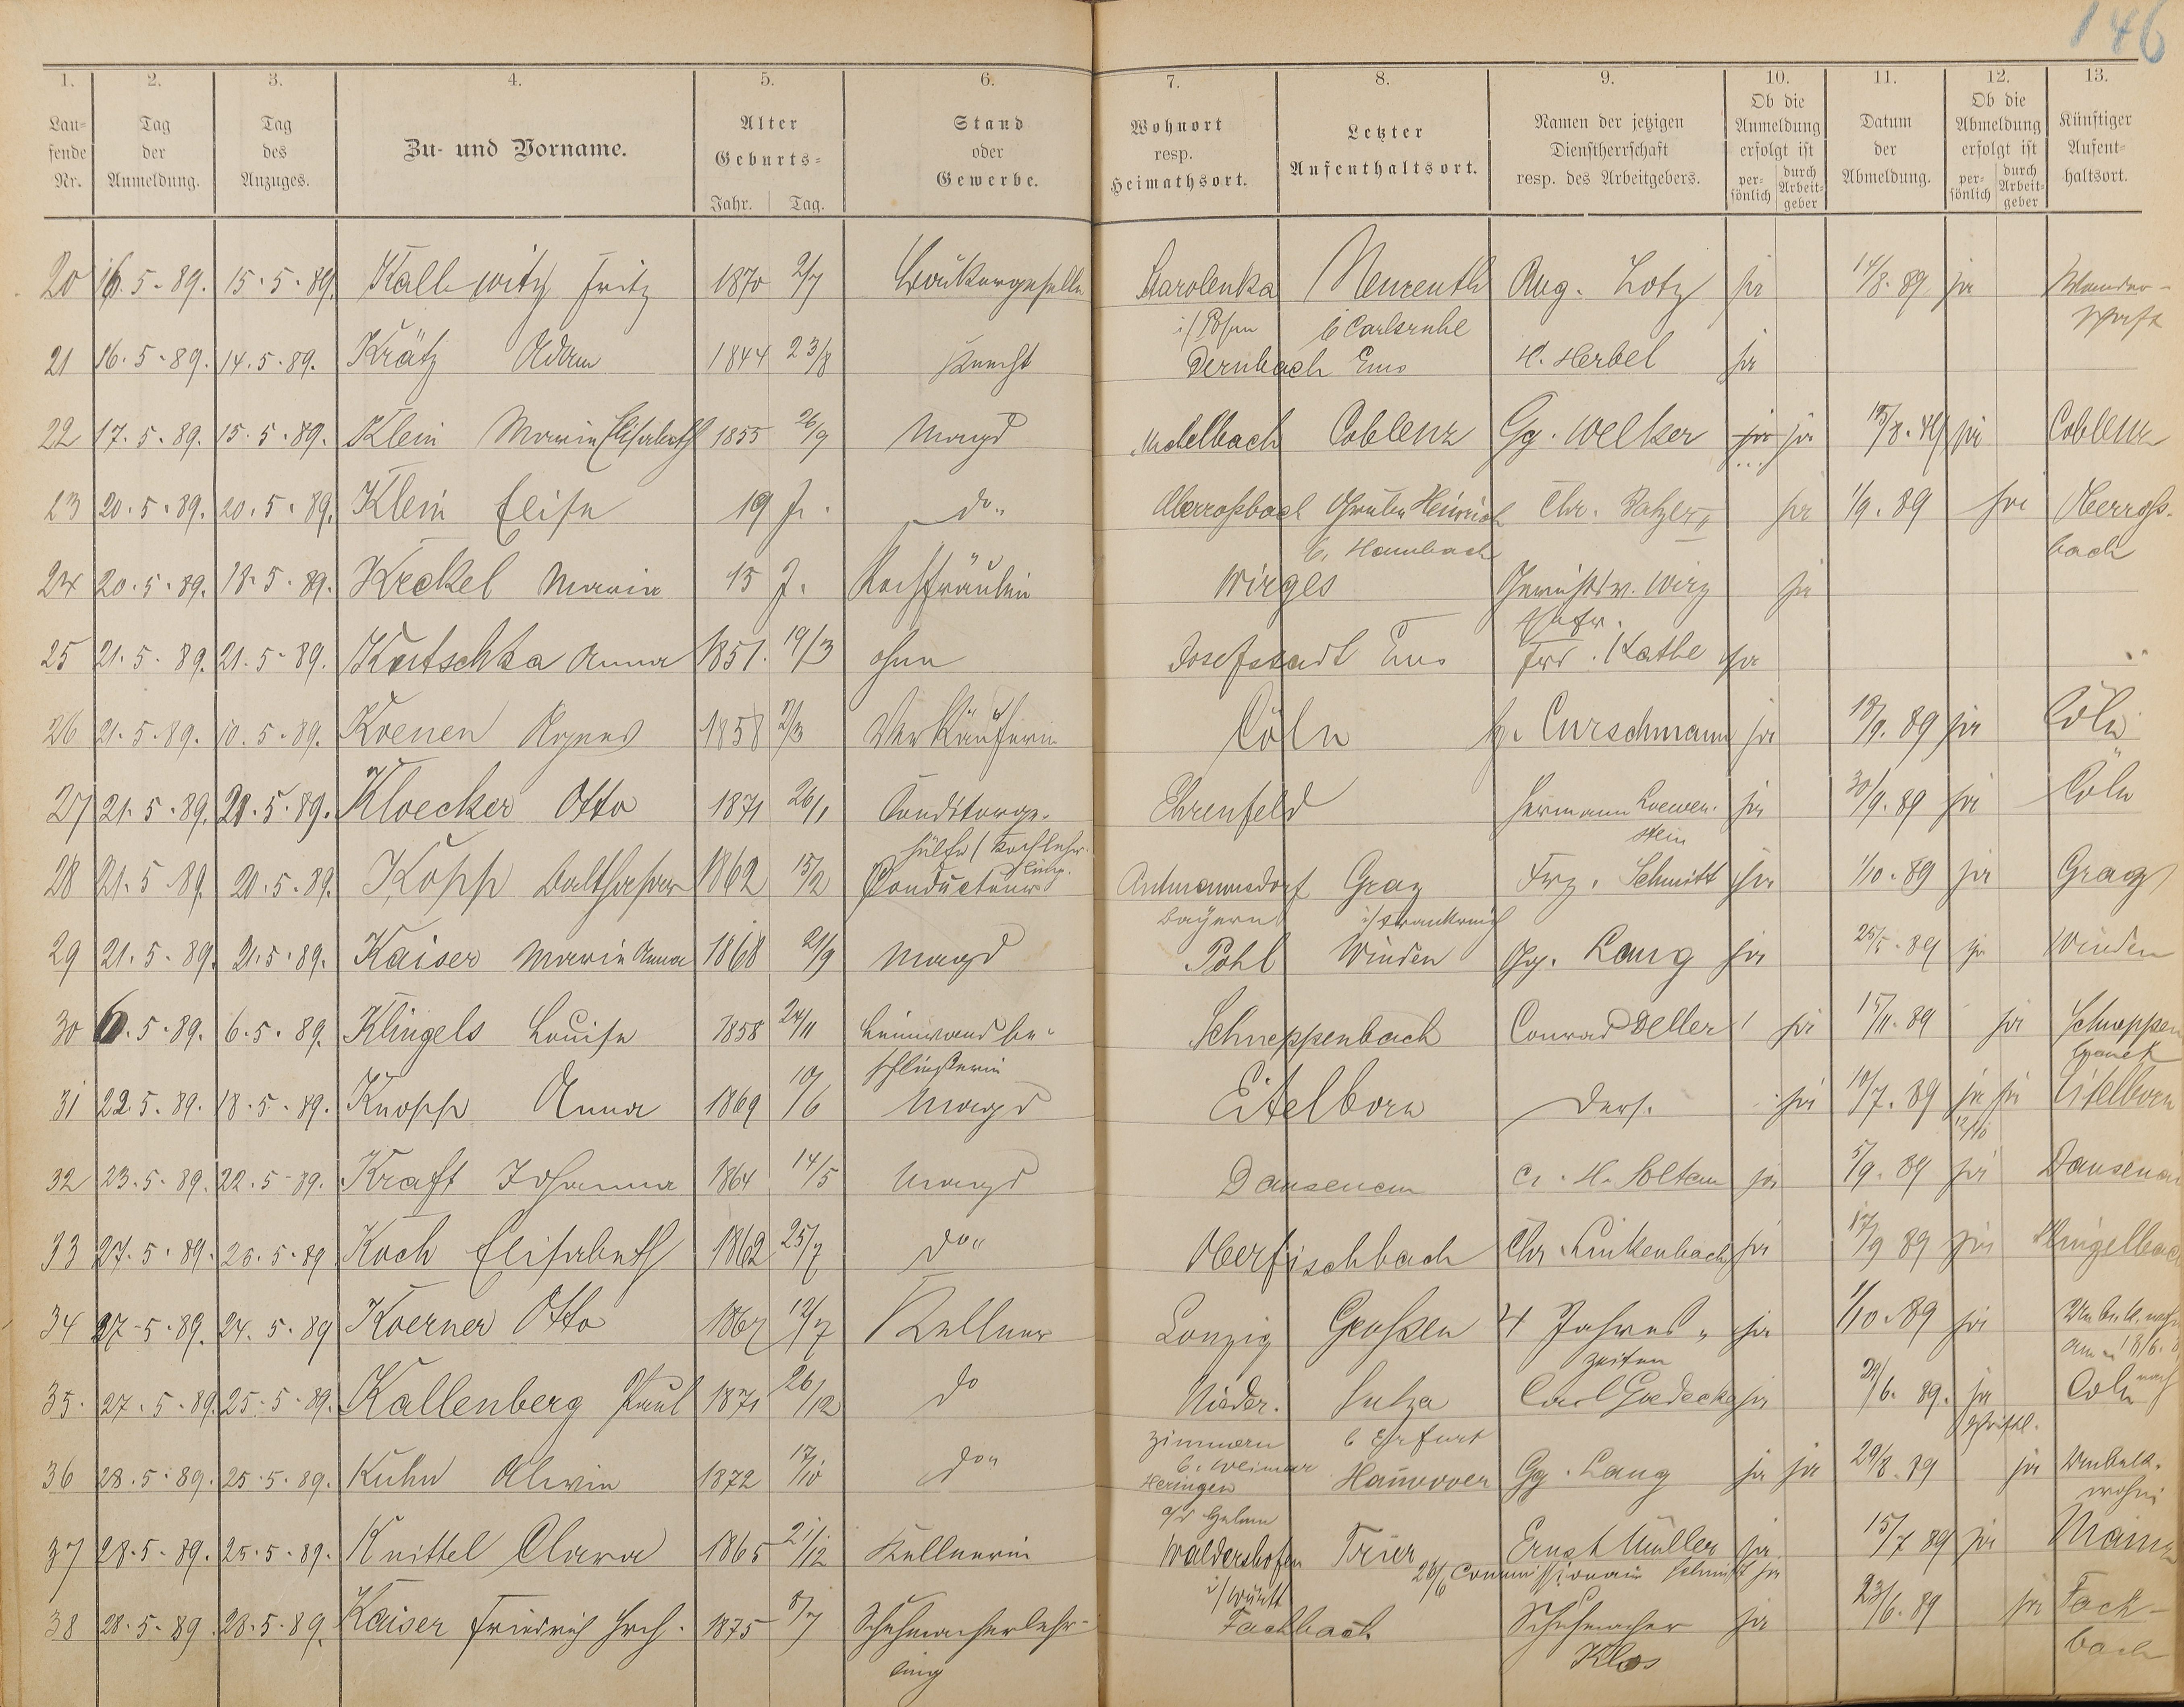 146
1. 2. 3. 4. 5. 6. 7. 8. 9. 10. 11. 12. 13.
Lau-fende Nr. Tag der Anmeldung. Tag des Anzuges. Zu- und Vorname. Alter Geburts- Jahr. Tag. Stand oder Gewerbe. Wohnort resp. Heimathsort. Letzter Aufenthaltsort. Namen der jetzigen Dienstherrschaft resp. des Arbeitgebers. Ob die Anmeldung erfolgt ist per-sönlich durch Arbeit-geber Datum der Abmeldung. Ob die Abmeldung erfolgt ist per-sönlich durch Arbeit-geber Künftiger Aufent-haltsort.
20 16.5.89. 15.5.89. Kallwitz Fritz 1870 2/7 Starolenka Neureuth Aug. Lotz ja 14/8.89 ja Wander-
i/Posen b Carlsruhe schaft
21 16.5.89. 14.5.89. Krätz Adam 1844 23/8 Knecht Dernbach Ems H. Herbel ja
22 17.5.89. 15.5.89. Klein Maria Elisabeth 1855 26/9 Magd Coblenz Gg. Welker ja ja ja Coblenz
23 20.5.89. 20.5.89. Klein Elise 19 J. do. Oberroßbach Grube Heinrich Chr. ja 1/9.89 ja Oberroß-
b. Hambach bach
24 20.5.89. 18.5.89. Keckel Maria 15 J. Kochfräulein Wirges ja
25 21.5.89. 21.5.89. Kutschka Anna 1851. 19/3 ohne Josefstadt Ems Frd. Kathe ja
26 21.5.89. 10.5.89. Koenen Agnes 1858 2/3 Verkäuferin Cöln Curschmann ja 18/9.89 ja Cöln
27 21.5.89. 21.5.89. Kloecker Otto 1871 26/1 Conditorge- Ehrenfeld Hermann Loewen- ja 30/9.89 ja Cöln
hülfe / Kochlehr-ling. stein
28 21.5.89. 21.5.89. Kopp Balthasar 1862 15/2 Conducteur Graz Frz. Schmitt ja 1/10.89 ja Graz
Bayern i/Frankreich
29 21.5.89. 21.5.89. Kaiser Maria Anna 1868 21/9 Magd Pohl Winden Gg. Lang ja ja Winden
30 6.5.89. 6.5.89. Klingels Louise 1858 24/11 Leinwandbe- Schneppenbach Conrad Deller ja 15/11.89 ja Schneppen
schließerin
31 22.5.89. 18.5.89. Knopp Anna 1869 10/6 Magd Eitelborn Ders. ja 10/7.89 ja ja Eitelborn
12/10
32 23.5.89. 22.5.89. Kraft Johanna 1864 14/5 Magd Dausenau C. H. Soltau ja 5/9.89 ja Dausenau
33 27.5.89. 26.5.89 Koch Elisabeth 1862 25/7 do" Oberfischbach Chr. Linkenbach ja 17/9 89 ja Klingelbach
34 27.5.89. 24.5.89 Koerner Otto 1867 12/7 Kellner Lonzig Großen 4 Jahres- ja 1/10.89 ja
zeiten
35. 27.5.89. 25.5.89. Kallenberg Paul 1871 26/12 do Nieder- Sulza Carl Goedecke ja 29/6.89. ja Cöln
zimmern b Erfurt schriftl.
b. Weimar
36 28.5.89. 25.5.89. Kuhn Alwin 1872 17/10 do" Heringen Hannover Gg. Lang ja ja 29/8.89 ja
a/d Helme
37 28.5.89. 25.5.89. Knittel Clara 1865 21/12 Kellnerin Waldershofen Trier Ernst Müller ja 15/7 89 ja Mainz
i/Württ 26/6 Commissionair Schmidt ja
38 28.5.89. 28.5.89. Kaiser Friedrich Hrch. 1875 8/7 Schuhmacherlehr- Fachbach Schuhmacher ja 23/6.89 ja Fach-
ling Klos bach